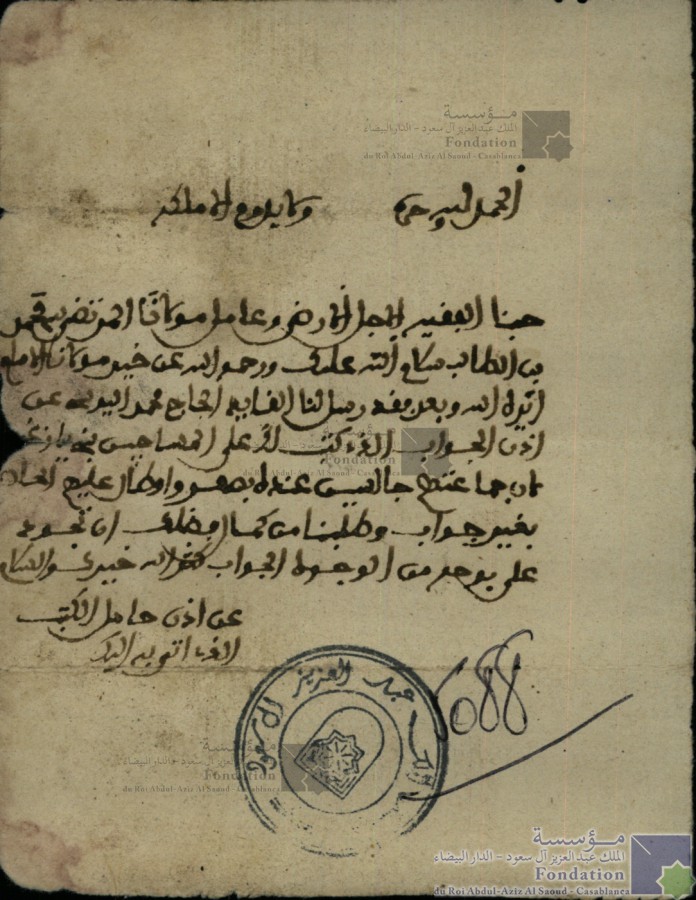 مؤسسة
الملك عبد العزيز آل سعود - الدار البيضاء
Fondation
du Roi Abdul-Aziz Al Saoud - Casablanca
الحمد لله وحده ولا يدوم الا ملكه
حبنا الفقيه الاجل الارضى وعامل مولانا المرتضى محمد
بن الطالب سلام الله عليك ورحمه الله عن خير مولانا الامام
ايده الله وبعد فقد رسل لنا القايد الحاج محمد عن
اذن الجواب الذي كتب لك على المساجين بني يازغة
بان جماعتهم جالسين عنده بصفرو وطال عليهم الحال
بغير جواب وطلبنا من كمال فضلك ان تجود
على بوجه من الوجوه الجواب الله خيرك والسلام
عن اذن حامل الكتب
الذي اتى به اليك
الملك عبد العزيز آل سعود
مؤسسة
الملك عبد العزيز آل سعود - الدار البيضاء
Fondation
du Roi Abdul-Aziz Al Saoud - Casablanca
مؤسسة
الملك عبد العزيز آل سعود - الدار البيضاء
Fondation
du Roi Abdul-Aziz Al Saoud - Casablanca